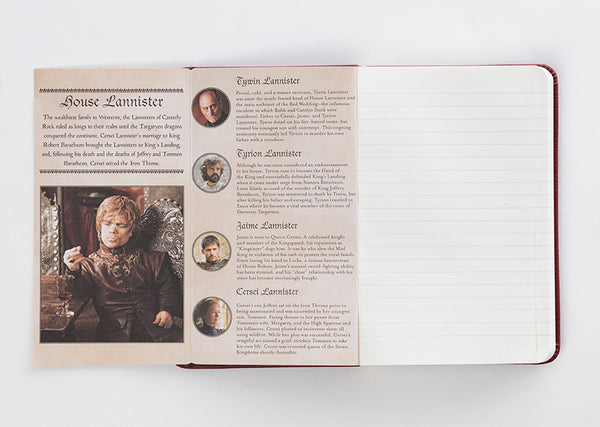 House Lannister
The wealthiest family in Westeros, the Lannisters of Casterly
Rock ruled as kings in their realm until the Targaryen dragons
conquered the continent. Cersei Lannister's marriage to King
Robert Baratheon brought the Lannisters to King's Landing,
and, following his death and the deaths of Joffrey and Tommen
Baratheon, Cersei seized the Iron Throne.
Tywin Lannister
Proud, cold, and a master tactician, Tywin Lannister
was once the much-feared head of House Lannister and
the main architect of the Red Wedding—the infamous
incident in which Robb and Catelyn Stark were
murdered. Father to Cersei, Jaime, and Tyrion
Tywin doted on his fair-haired twins, but
treated his youngest son with contempt. This ongoing
animosity eventually led Tyrion to murder his own
father with a crossbow.
Tyrion Lannister
Although he was once considered an embarrassment
to his house, Tyrion rose to become the Hand of
the King and successfully defended King's Landing
when it came under siege from Stannis Baratheon.
Later falsely accused of the murder of King Joffrey
Baratheon, Tyrion was sentenced to death by Tywin, but
after killing his father and escaping, Tyrion traveled to
Essos where he became a vital member of the court of
Daenerys Targaryen.
Jaime Lannister
Jaime is twin to Queen Cersei. A celebrated knight
and member of the Kingsguard, his reputation as
"Kingslayer" dogs him. It was he who slew the Mad
King in violation of his oath to protect the royal family.
Since losing his hand to Locke, a vicious bannerman
of House Bolton, Jaime's natural sword-fighting ability
has been stymied, and his "close" relationship with his
sister has become increasingly fraught.
Cersei Lannister
Cersei's son Joffrey sat on the Iron Throne prior to
being assassinated and was succeeded by her youngest
son, Tommen. Facing threats to her power from
Tommen's wife, Margaery, and the High Sparrow and
his followers, Cersei plotted to incinerate them all
using wildfire. While her ploy was successful, Cersei's
vengeful act caused a grief-stricken Tommen to take
his own life. Cersei was crowned queen of the Seven
Kingdoms shortly thereafter.